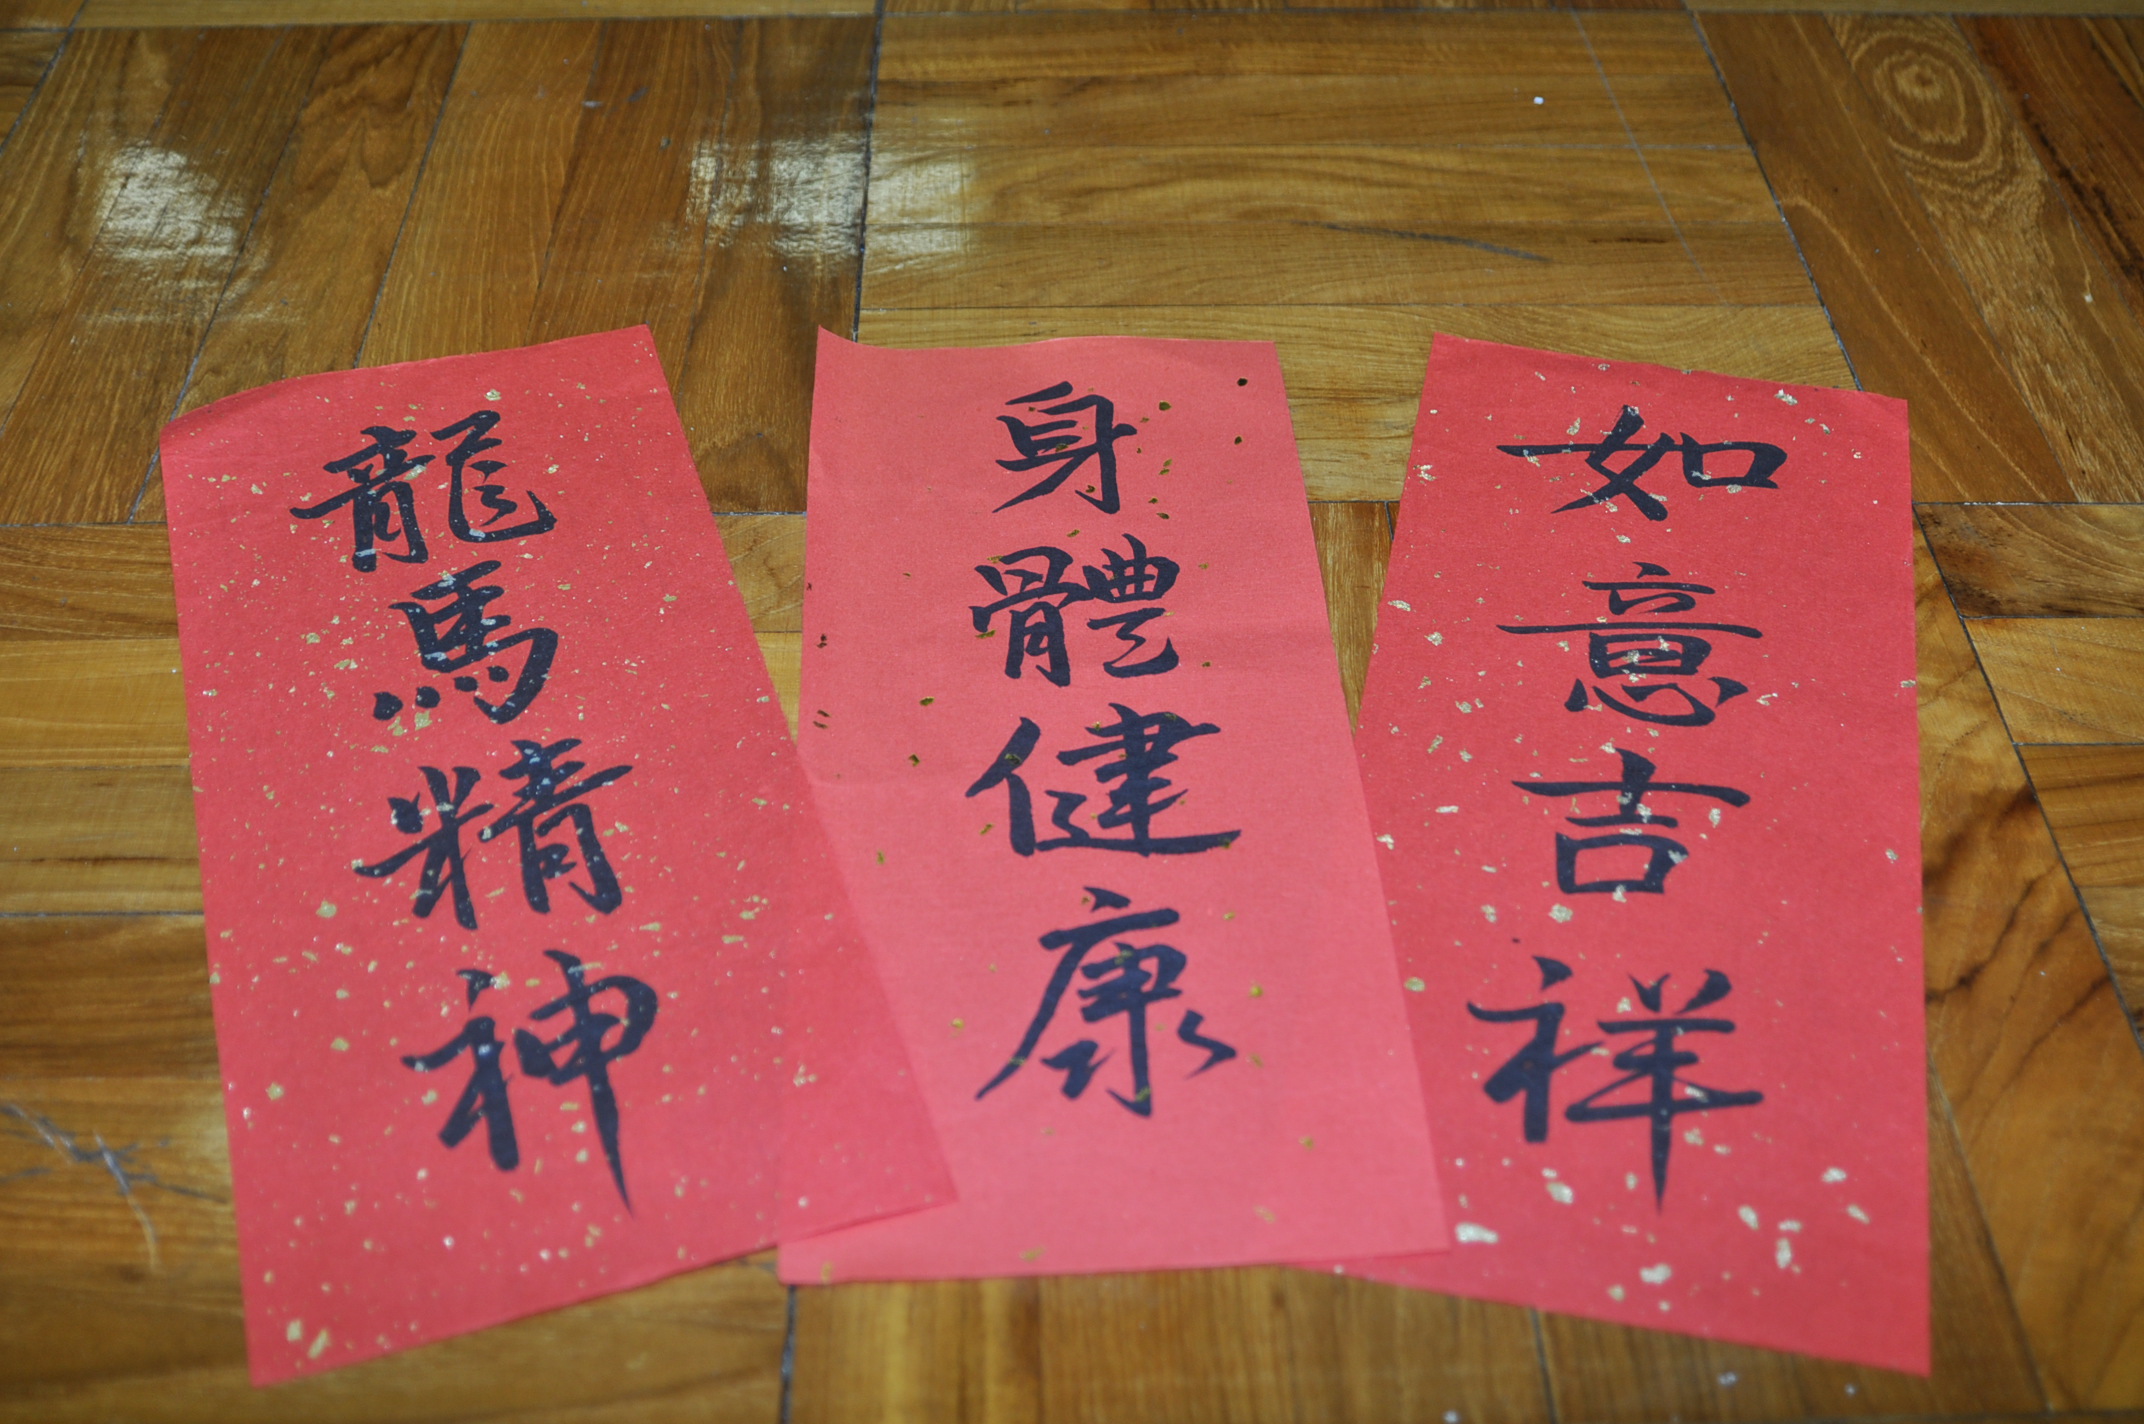 龍馬精神
身體健康
如意吉祥